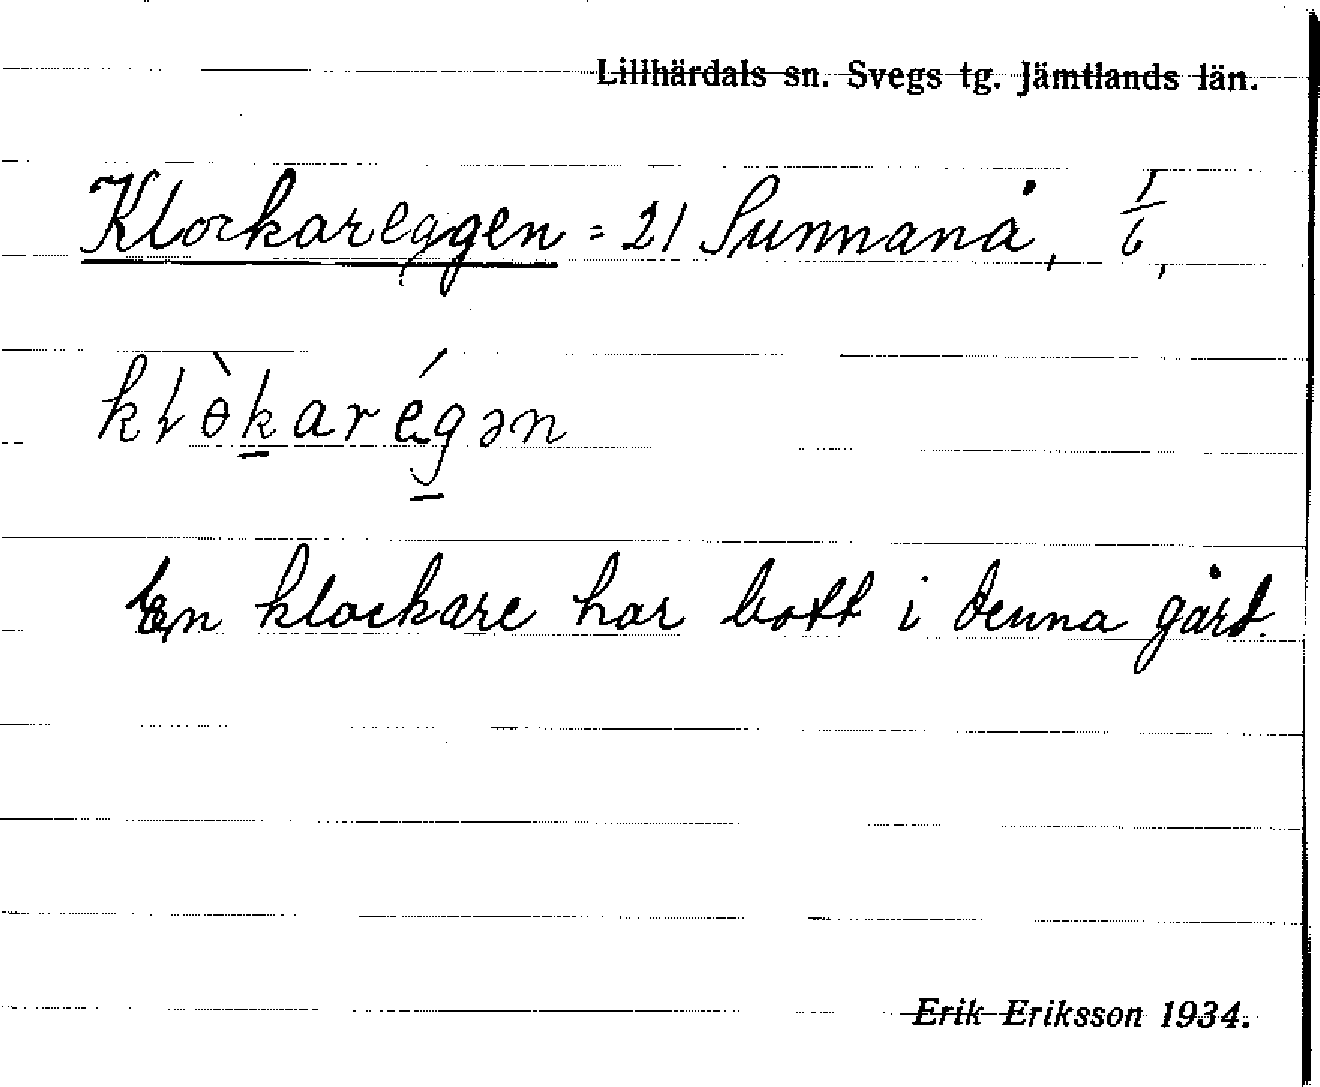 Lillhärdals sn. Svegs tg. Jämtlands län.
Klockareggen = 21 Sunnanå, 1/6,
klòkarégən
En klockare har bott i denna gård.
Erik Eriksson 1934.